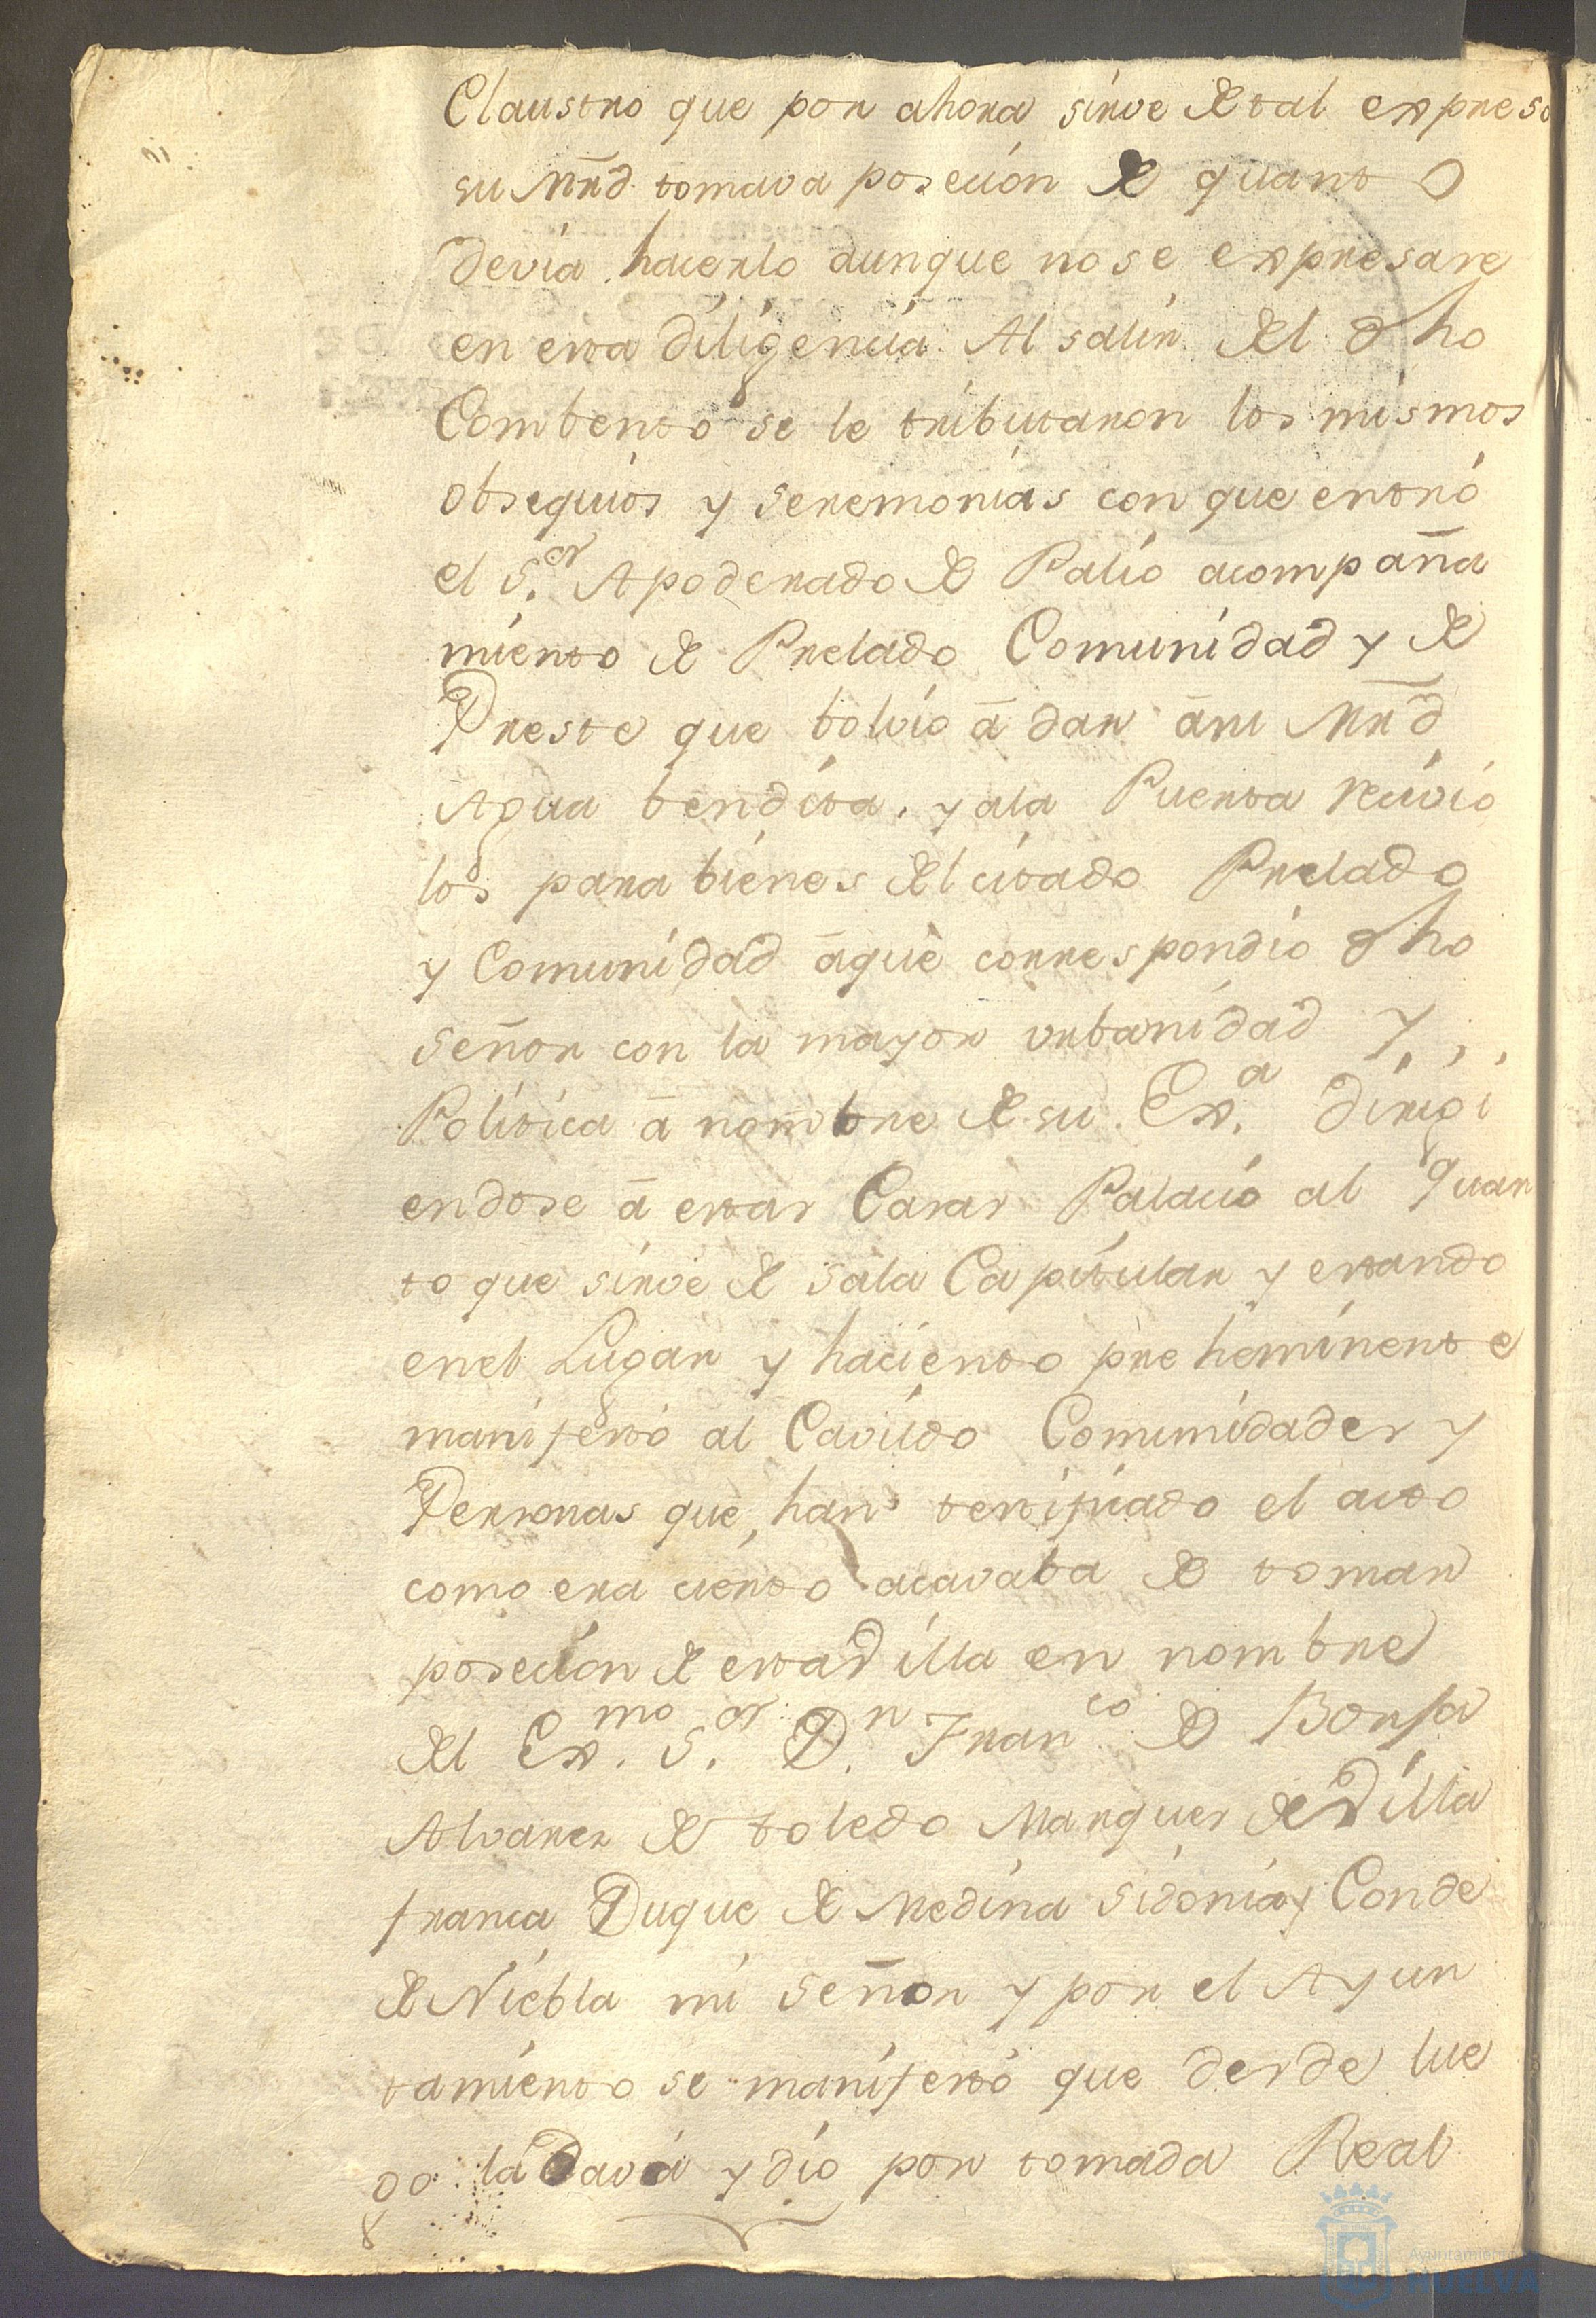 Claustro que por ahora sirve de tal expreso
su Mrd. tomava poseción de quanto
devia hacerlo aunque no se expresare
en esta diligencia. Al salir del dho
Combento se le tributaron los mismos
obsequios y seremonias con que entró
el S.or Apoderado de Palio acompaña
miento de Prelado Comunidad y de
Preste que bolvio â dar âsu Mrd
Agua bendita. y ala Puerta recivió
los parabienes del citado Prelado
y Comunidad âque correspondio dho
señor con la mayor urbanidad y,,,
Politica â nombre de su Ex.a dirigi
endose â estas Casas Palacio al quar
to que sirve de sala Capitular y estando
enel Lugar y haciento preheminente
manifestó al Cavildo Comunidades y
Personas que han testificado el acto
como era cierto acavaba de tomar
poseción de estaVilla en nombre
del Ex.mo S.or D.n Fran.co de Borja
Alvarez de toledo Marques de Villa
franca Duque de Medina Sidonia y Conde
de Niebla mi Señor y por el Ayun
tamiento se manifestó que desde lue
go la dava y dio por tomada Real
Ayuntamiento
HUELVA